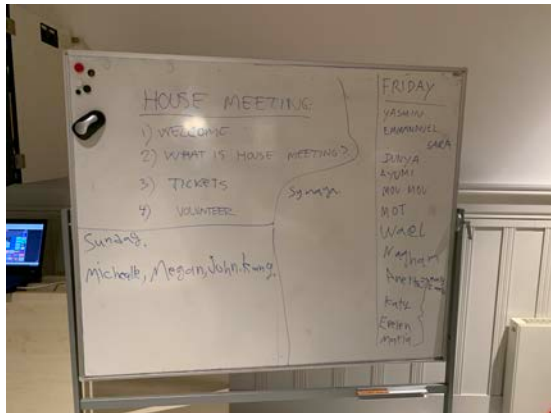 HOUSE MEETING
1) WELCOME
2) WHAT IS HOUSE MEETING?
3) TICKETS
4) VOLUNTEER
Sunday,
Michelle, Megan, John.Kang
FRIDAY
YASMIN
EMMANUEL
SARA
SUNYA
AYUMI
MOU MOU
MOT
Wael
Nagham
Katy
Evelen
Maria